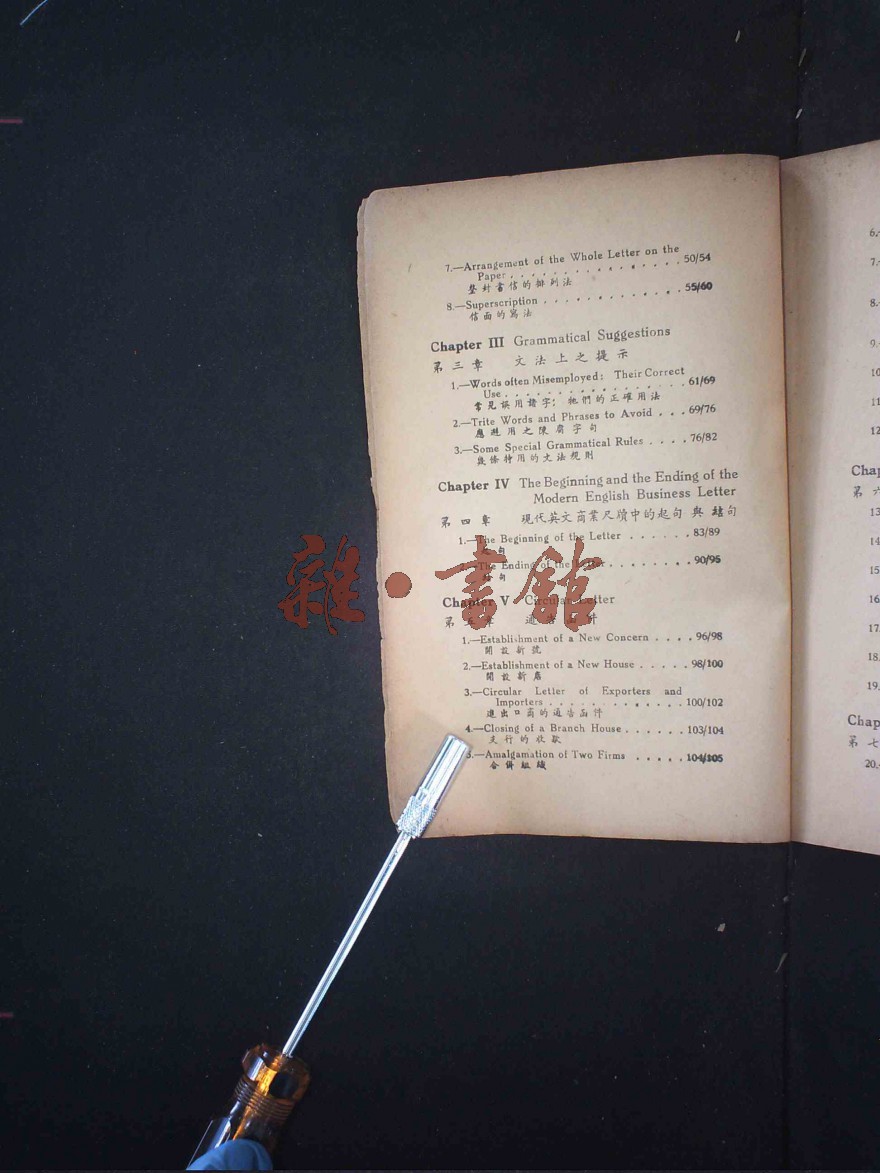 7.—Arrangement of the Whole Letter on the
Paper . . . . . . . . . . . . . . . . 50/54
整封書信的排列法
8.—Superscription . . . . . . . . . . . . . 55/60
信面的寫法
Chapter III Grammatical Suggestions
第三章 文法上之提示
1.—Words often Misemployed: Their Correct
Use . . . . . . . . . . . . . . . . . 61/69
常見誤用諸字; 牠們的正確用法
2.—Trite Words and Phrases to Avoid . . . 69/76
應避用之陳腐字句
3.—Some Special Grammatical Rules . . . . 76/82
幾條特用的文法規則
Chapter IV The Beginning and the Ending of the
Modern English Business Letter
第四章 現代英文商業尺牘中的起句與結句
1.—The Beginning of the Letter . . . . . . 83/89
起句
—The Ending of the Letter . . . . . . . . 90/95
結句
Chapter V Circular Letter
第五章 通告函件
1.—Establishment of a New Concern . . . . 96/98
開設新號
2.—Establishment of a New House . . . . . 98/100
開設新店
3.—Circular Letter of Exporters and
Importers . . . . . . . . . . . . . 100/102
進出口商的通告函件
4.—Closing of a Branch House . . . . . . 103/104
支行的收歇
5.—Amalgamation of Two Firms . . . . . 104/105
合併組織
雜·書館
6.
7.
8.
9.
10
11
12
Chap
第六
13
14
15
16
17.
18.
19.
Chap
第七
20.